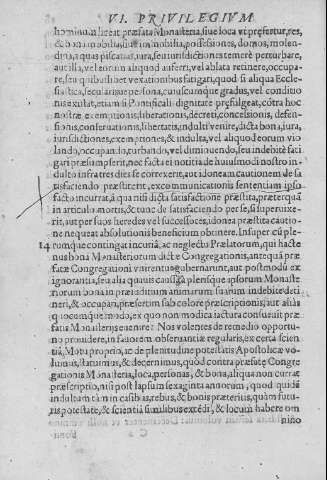 VI. PRIVILEGIVM
hominū liceat præfata Monasteria, siue loca vt præfertur, res,
& bona mobilia, siue immobilia, possessiones, domos, molendi
na, aquas piscatias, iura, seu iurisdictiones temere perturbare,
aut illa, vel eorum aliquod auferri, vel ablata retinere, occupa-
re, seu quibuslibet vexationibus fatigari, quod si aliqua Eccle-
siastica, secularisue persona, cuiuscumque gradus, vel conditio
nis existat, etiam si Pontificali dignitate præfulgeat, cōtra hoc
nostræ exemptionis, liberationis, decreti, concessionis, defen-
sionis, conseruationis, libertatis, indulti venire, dicta bona, iura,
iurisdictiones, exemptiones, & indulta, vel aliquod eorum vio
lando, occupando, turbando, vel diminuendo, seu indebitè fati
gari præsumpserit, nec facta ei notitia de huiusmodi nostro in-
dulto infra tres dies se correxerit, aut idoneam cautionem de sa
tisfaciendo præstiterit, excommunicationis sententiam ipso
facto incurrat, à qua nisi dicta satisfactione præstita, præterquā
in articulo mortis, & tunc de satisfaciendo per se, si superuixe-
rit, aut per suos heredes vel successores, idonea præstita cautio-
ne nequeat absolutionis beneficium obtinere. Insuper cū ple-
14 rumque contingat incuriâ, ac neglectu Prælatorum, qui hacte
nus bona Monasteriorum dictæ Congregationis, antequā præ
fatæ Congregationi vnirentur gubernarunt, aut postmodū ex
ignorantia, seu alia quauis caussâ, plerumque ipsorum Monaste
riorum bona in præiuditium animarum suarum indebitè deti
neri, & occupari, præsertim sub colore præscriptionis, aut aliâs
quocumque modo, ex quo non modica iactura consueuit præ
fatis Monasterijs euenire: Nos volentes de remedio opportu-
no prouidere, in fauorem obseruantiæ regularis, ex certa scien
tia, Motu proprio, ac de plenitudine potestatis Apostolicæ vo
lumus, statuimus, & decernimus, quod contra præfatæ Congre
gationis Monasteria, loca, personas, & bona, aliqua non currat
præscriptio, nisi post lapsum sexaginta annorum, quod quidē
indultum tàm in casibus, rebus, & bonis præteritis, quàm futu-
ris, potestate, & scientia similibus extēdi, & locum habere om
nino